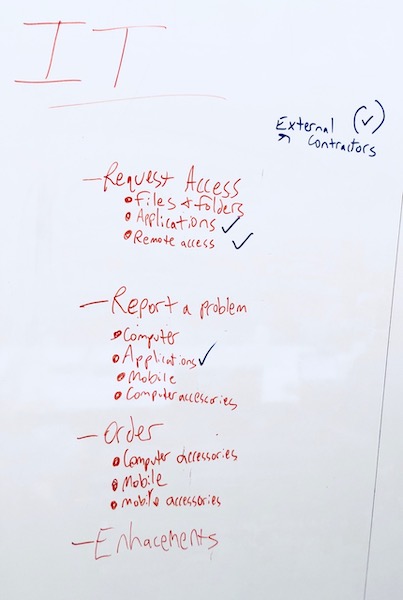 IT
External (✓)
Contractors
- Request Access
• Files & folders
• Applications ✓
• Remote access ✓
- Report a problem
• Computer
• Applications ✓
• Mobile
• Computer accessories
- Order
• Computer accessories
• Mobile
• mobile accessories
- Enhacements